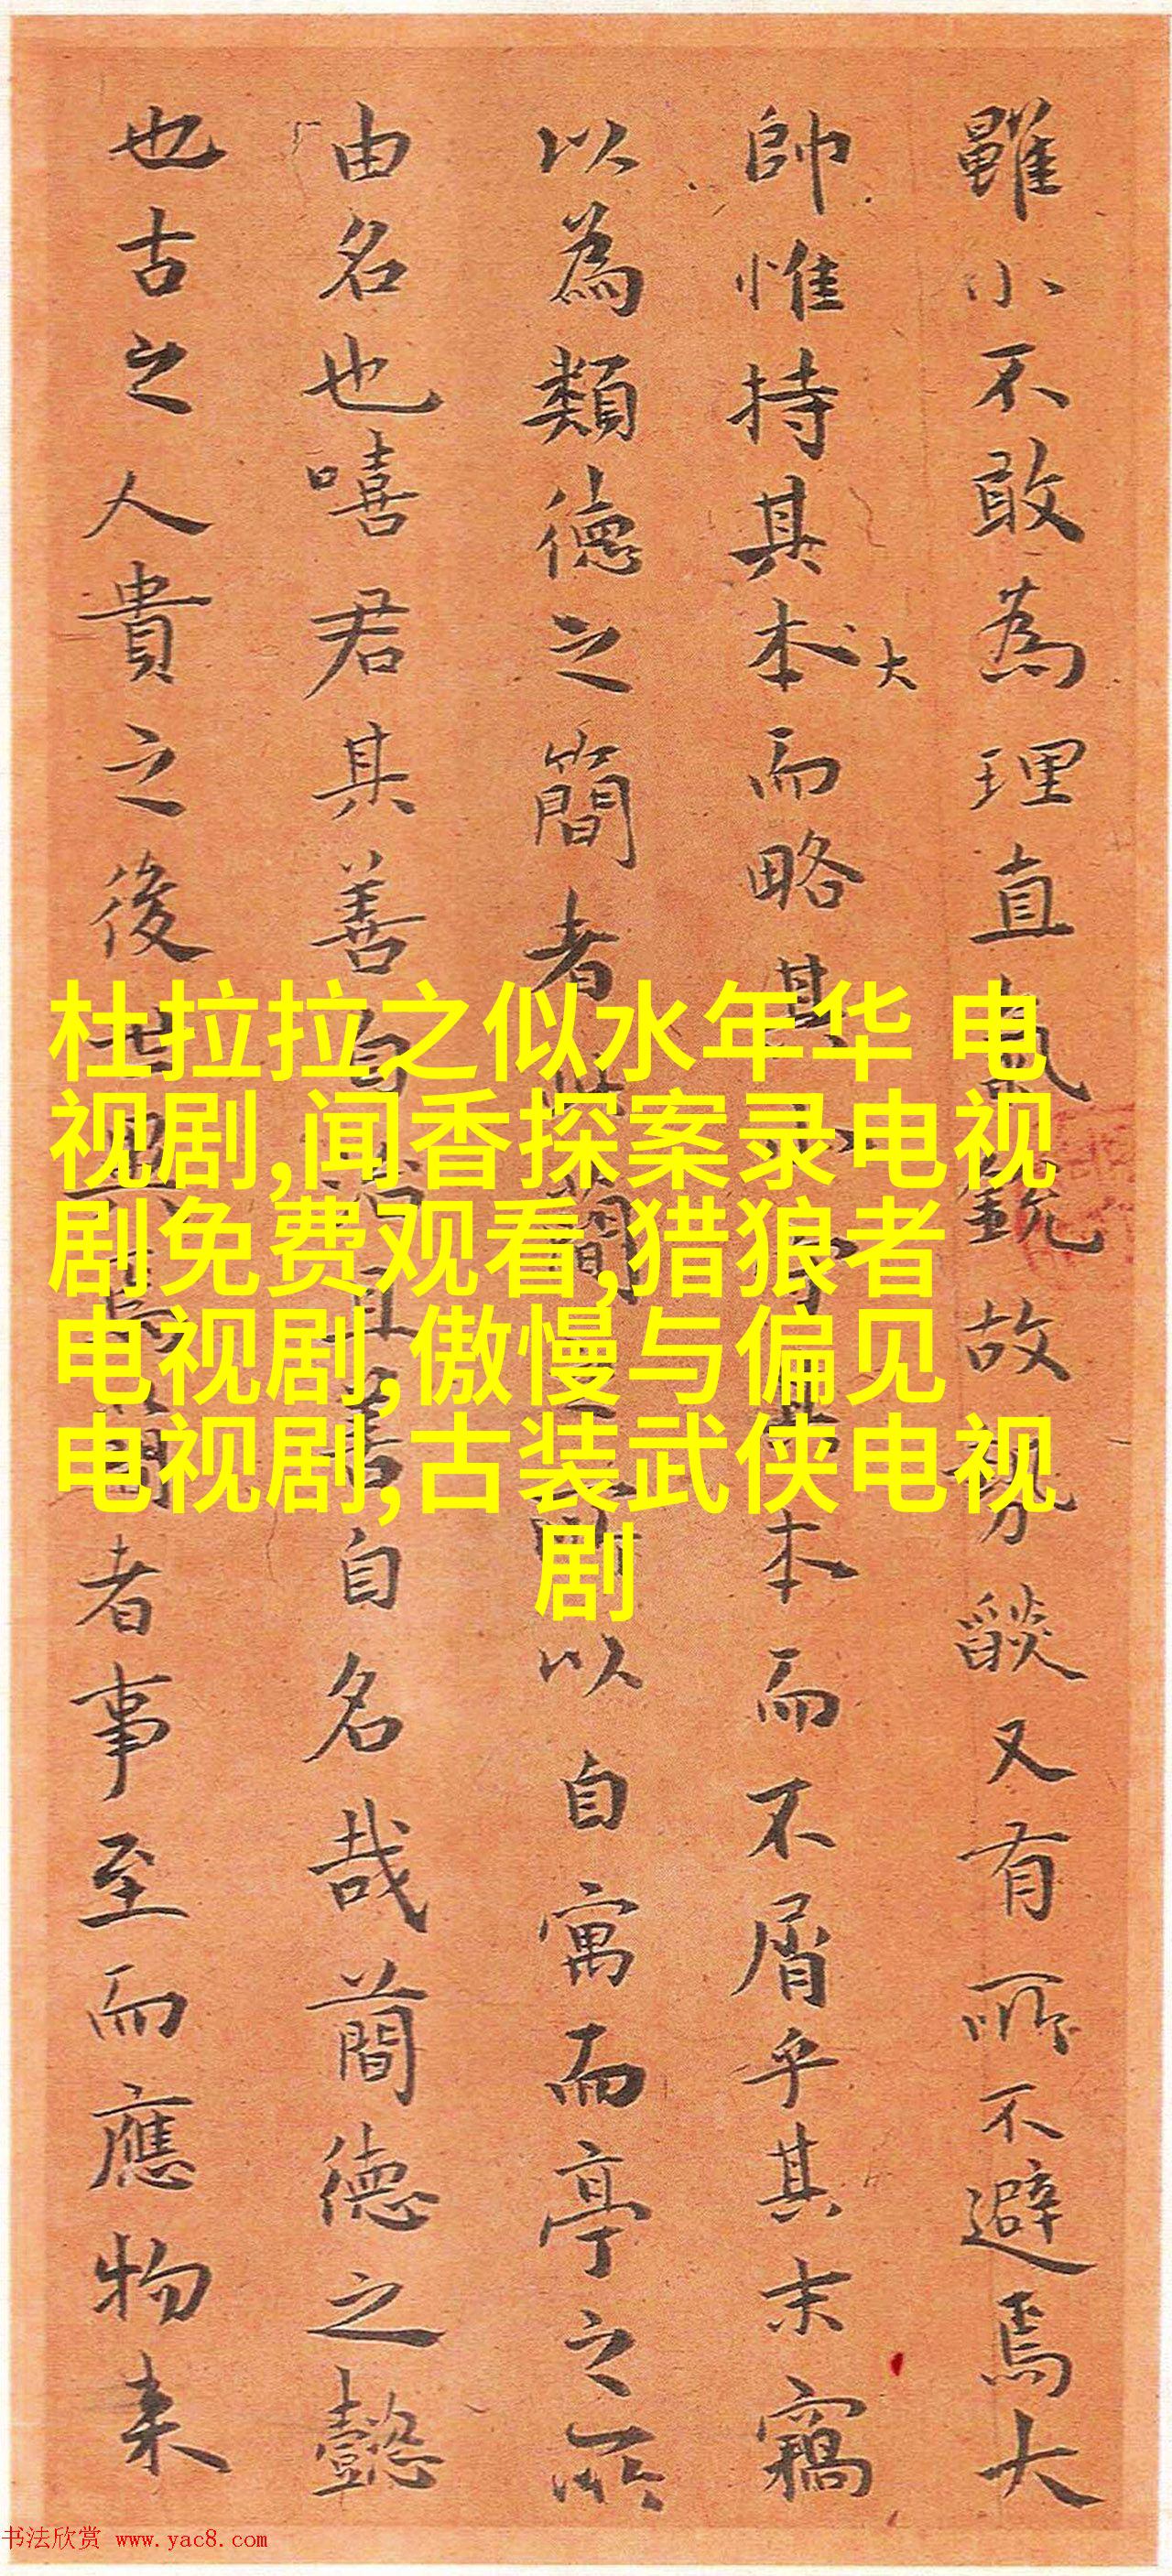 雖小不敢為理直氣銳故勢燄又有所不避焉大
帥惟持其本而略其小守其本而不屑乎其末竊
大
以為類德之簡者簡之所以自寓而亭之所
由名也嘻君其善自且善自名哉簡德之懿
也古之人貴之後世焉簡者事至而應物来
杜拉拉之似水年华 电
视剧,闻香探案录电视
剧免费观看,猎狼者
电视剧,傲慢与偏见
电视剧,古装武侠电视
剧
书法欣赏 www.yac8.com